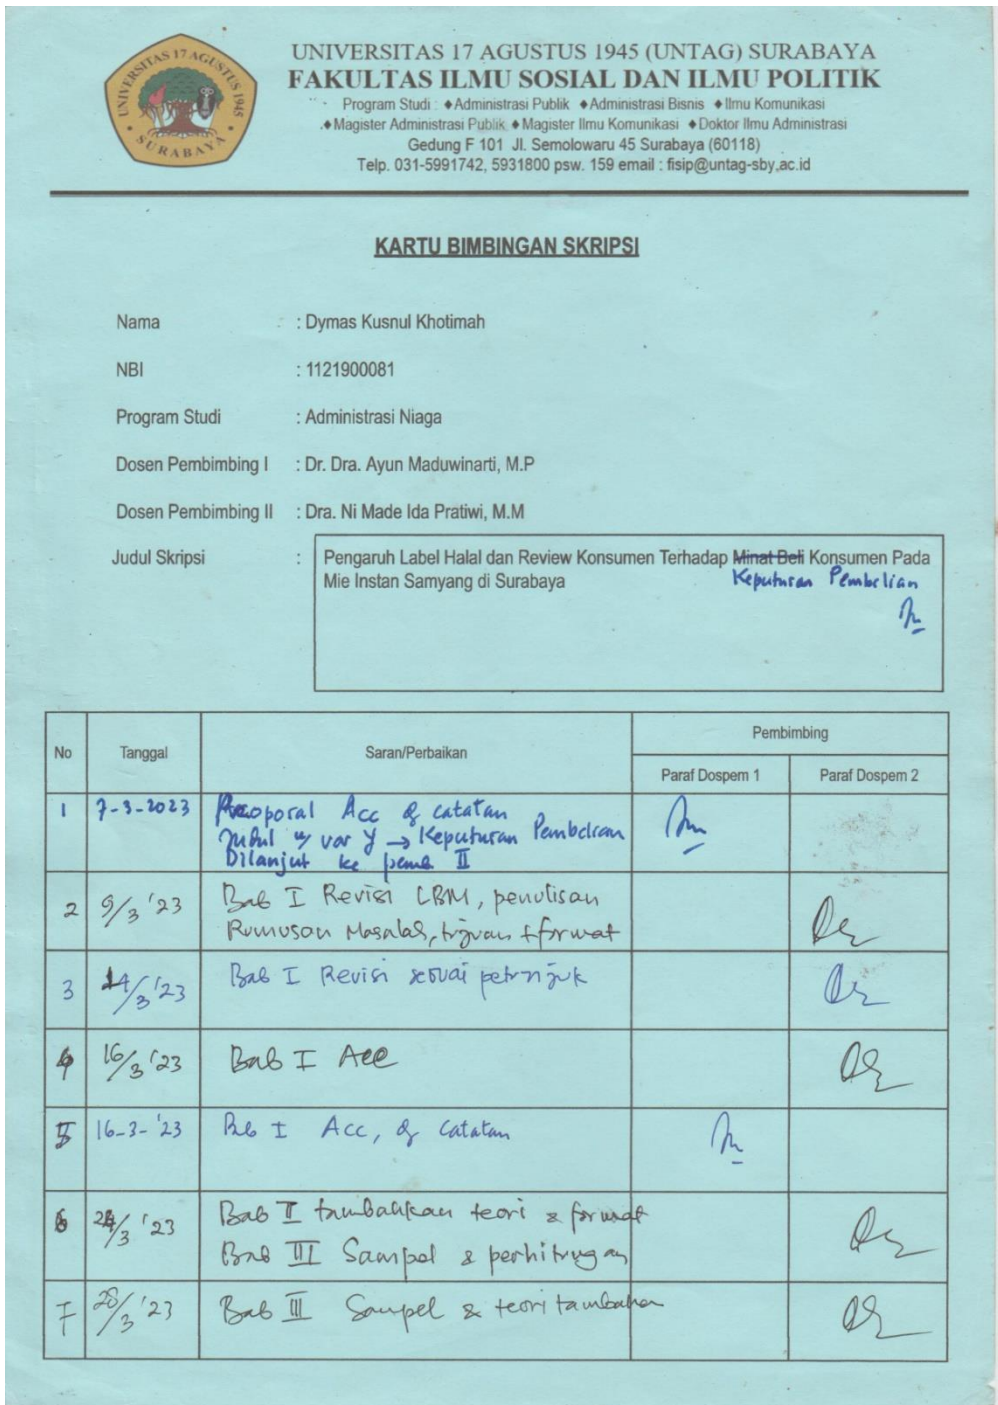 UNIVERSITAS 17 AGUSTUS 1945
SURABAYA
UNIVERSITAS 17 AGUSTUS 1945 (UNTAG) SURABAYA
FAKULTAS ILMU SOSIAL DAN ILMU POLITIK
Program Studi : ♦Administrasi Publik ♦Administrasi Bisnis ♦Ilmu Komunikasi
♦Magister Administrasi Publik ♦Magister Ilmu Komunikasi ♦Doktor Ilmu Administrasi
Gedung F 101 Jl. Semolowaru 45 Surabaya (60118)
Telp. 031-5991742, 5931800 psw. 159 email : fisip@untag-sby.ac.id
KARTU BIMBINGAN SKRIPSI
Nama : Dymas Kusnul Khotimah
NBI : 1121900081
Program Studi : Administrasi Niaga
Dosen Pembimbing I : Dr. Dra. Ayun Maduwinarti, M.P
Dosen Pembimbing II : Dra. Ni Made Ida Pratiwi, M.M
Judul Skripsi : Pengaruh Label Halal dan Review Konsumen Terhadap Minat Beli Konsumen Pada
Mie Instan Samyang di Surabaya Keputusan Pembelian
No Tanggal Saran/Perbaikan Pembimbing
Paraf Dospem 1 Paraf Dospem 2
1 7-3-2023 Proposal Acc dg catatan
Judul u/ var Y → Keputusan Pembelian
Dilanjut ke pemb II
2 9/3 '23 Bab I Revisi LBM, penulisan
Rumusan Masalah, tujuan + format
3 14/3 '23 Bab I Revisi sesuai petunjuk
4 16/3 '23 Bab I Acc
5 16-3-'23 Bab I Acc, dg catatan
6 24/3 '23 Bab II tambahkan teori & format
Bab III Sampel & perhitungan
7 28/3 '23 Bab III Sampel & teori tambahan